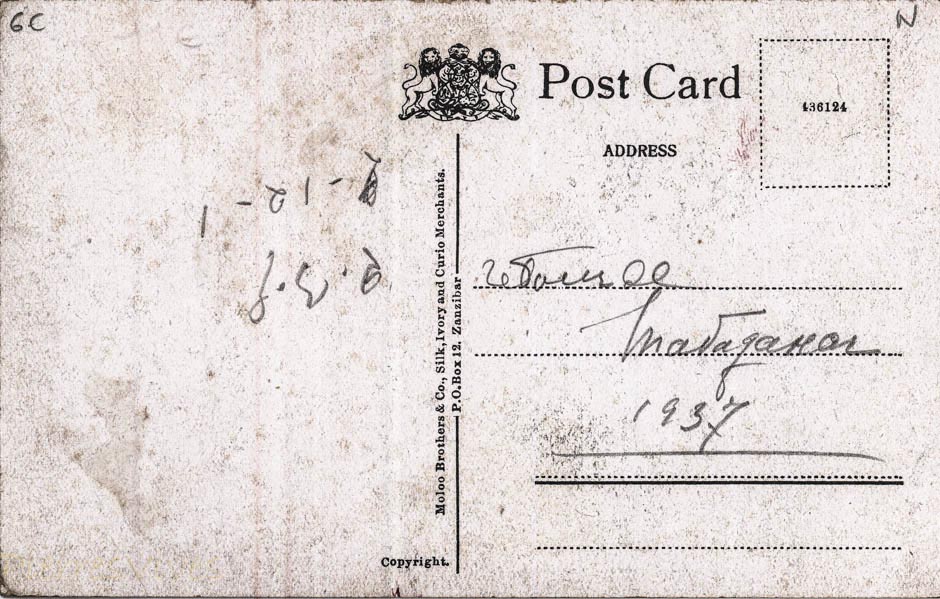 6C
N
Post Card
436124
ADDRESS
Moloo Brothers & Co., Silk, Ivory and Curio Merchants.
P.O. Box 12. Zanzibar
1937
Copyright.